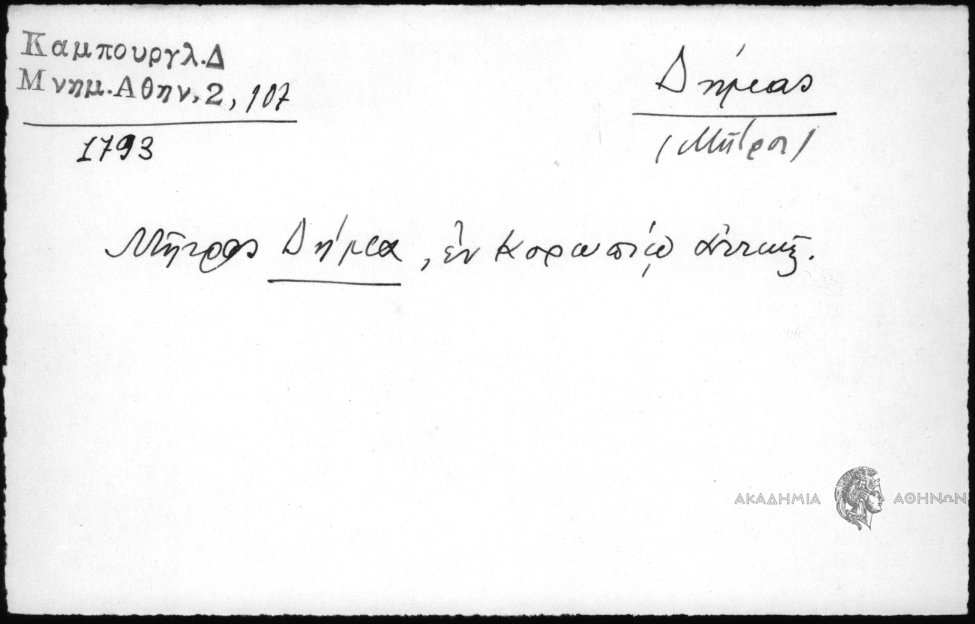 Καμπουργλ.Δ
Μνημ.Αθην.2, 107
1793
Δήμας
(Μῆτρος)
Μῆτρος Δήμα, ἐν Κορωπίῳ Ἀττικῆς.
ΑΚΑΔΗΜΙΑ ΑΘΗΝΩΝ